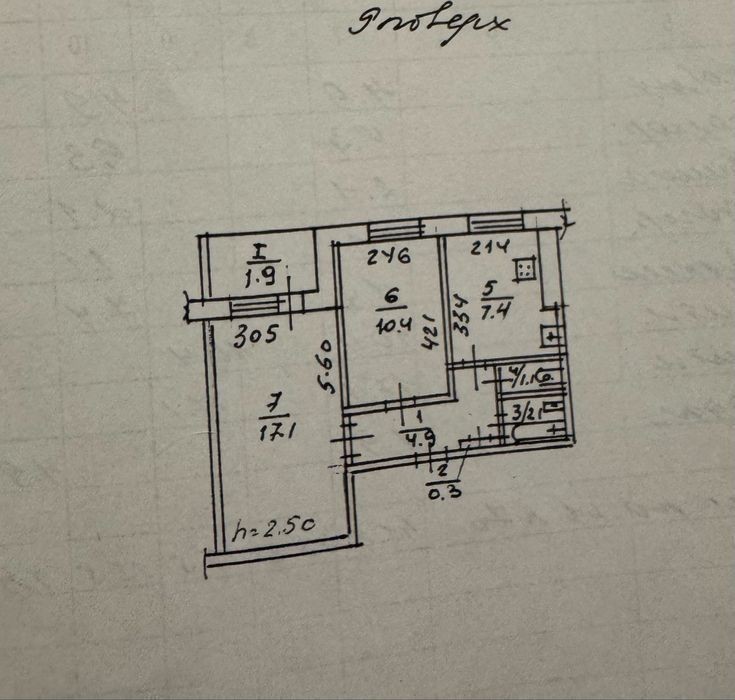 9 поверх
I
1.9
305
5.60
7
17.1
h=2.50
246
6
10.4
421
214
5
7.4
334
1
4.9
2
0.3
3/21